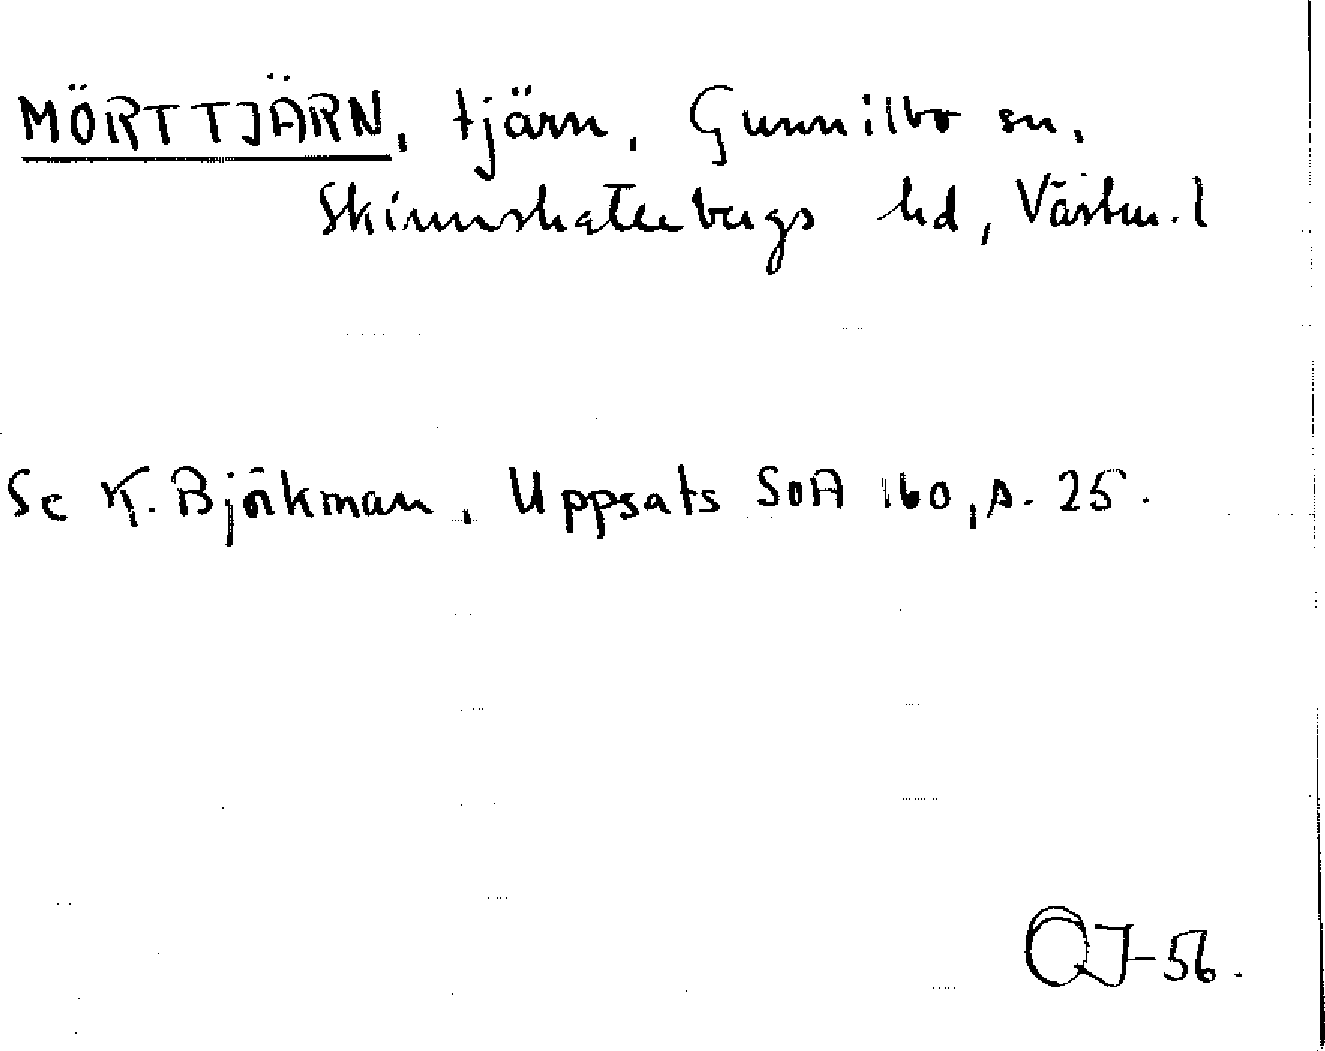 MÖRTTJÄRN, tjärn, Gunnilbo sn,
Skinnskattebergs hd, Västm. l
Se K. Björkman, Uppsats SOA 160, s. 25.
QJ-56.